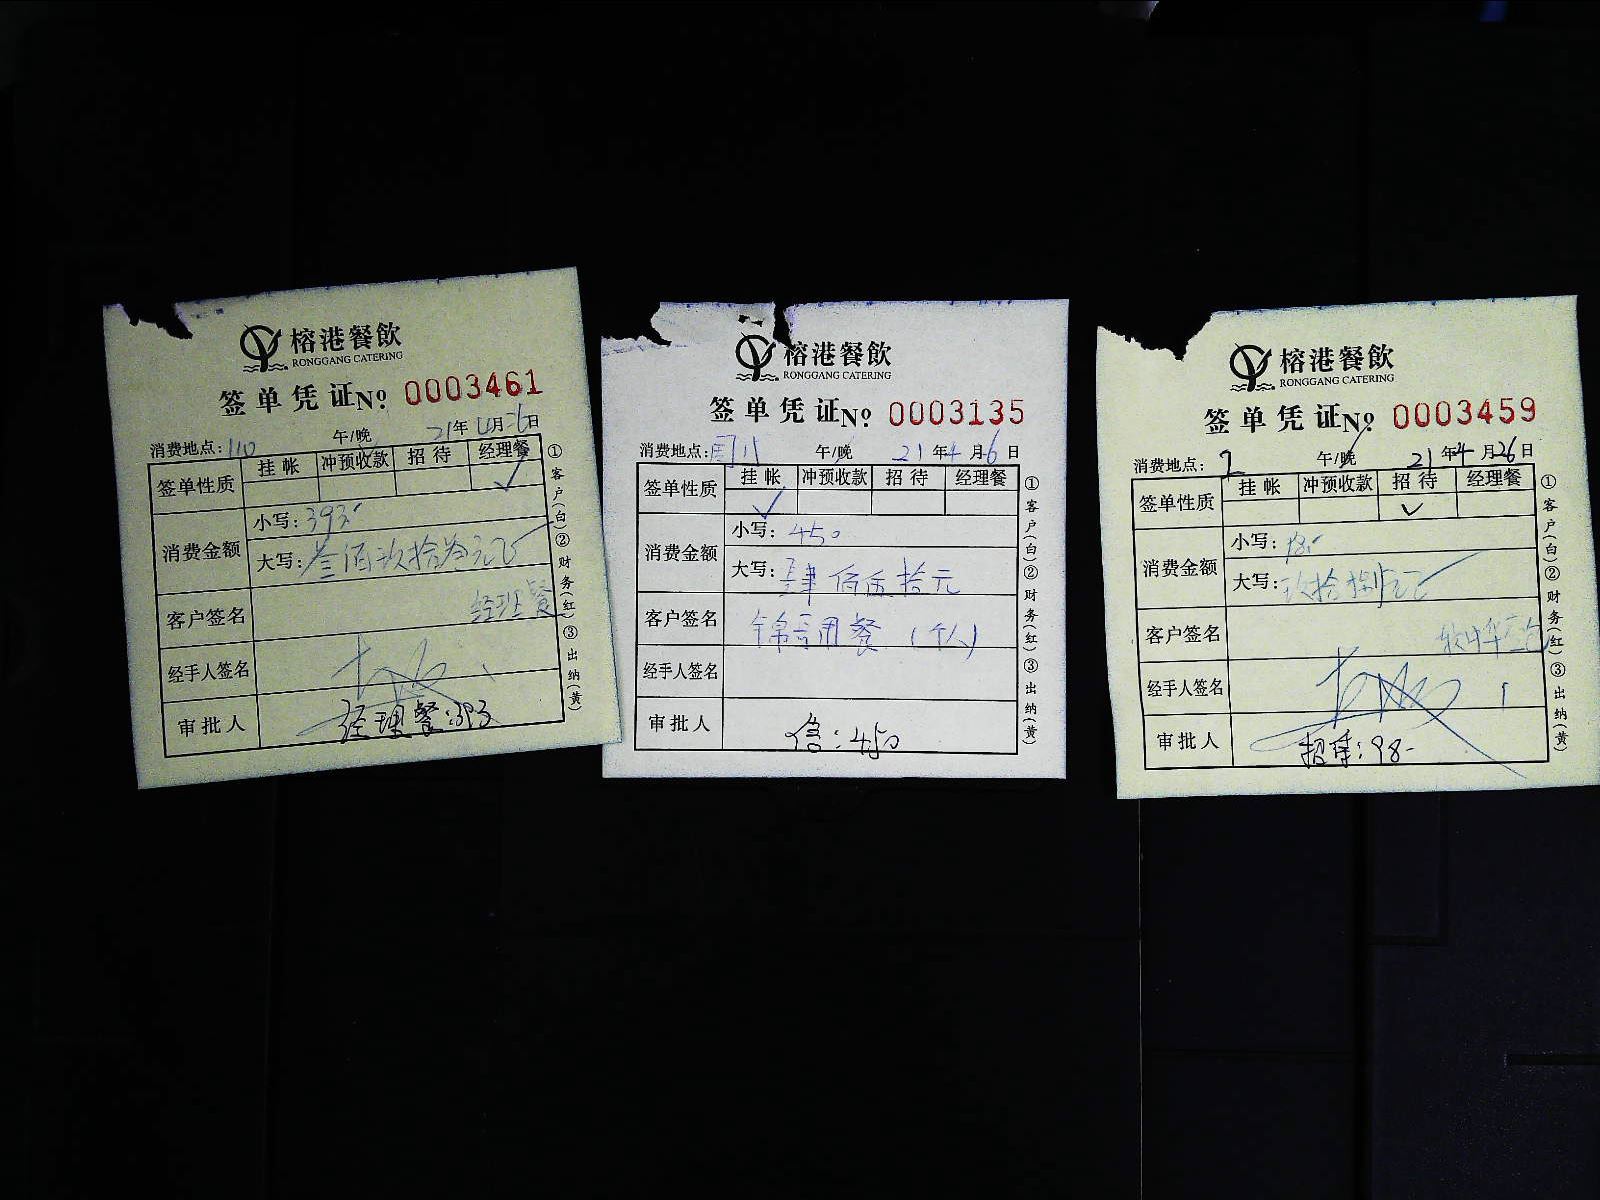 榕港餐飲
RONGGANG CATERING
签单凭证№ 0003461
消费地点:110 午/晚 21年4月26日
签单性质 挂帐 冲预收款 招待 经理餐
✓
消费金额 小写:393.-
大写:叁佰玖拾叁元正
客户签名 经理餐
经手人签名
审批人 经理餐:393
①客户(白)②财务(红)③出纳(黄)
榕港餐飲
RONGGANG CATERING
签单凭证№ 0003135
消费地点: 午/晚 21年4月6日
签单性质 挂帐 冲预收款 招待 经理餐
✓
消费金额 小写:450
大写:肆佰伍拾元
客户签名 用餐
经手人签名
审批人 :450
①客户(白)②财务(红)③出纳(黄)
榕港餐飲
RONGGANG CATERING
签单凭证№ 0003459
消费地点: 午/晚 21年4月26日
签单性质 挂帐 冲预收款 招待 经理餐
✓
消费金额 小写:98.-
大写:玖拾捌元正
客户签名
经手人签名
审批人 招待:98.-
①客户(白)②财务(红)③出纳(黄)